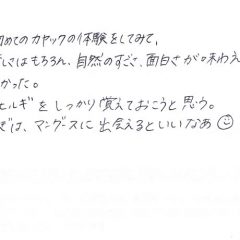 初めてのカヤックの体験をしてみて、
しさはもちろん、自然のすごさ、面白さが味わえ
かった。
ヒルギをしっかり覚えておこうと思う。
は、マングースに出会えるといいなあ☺